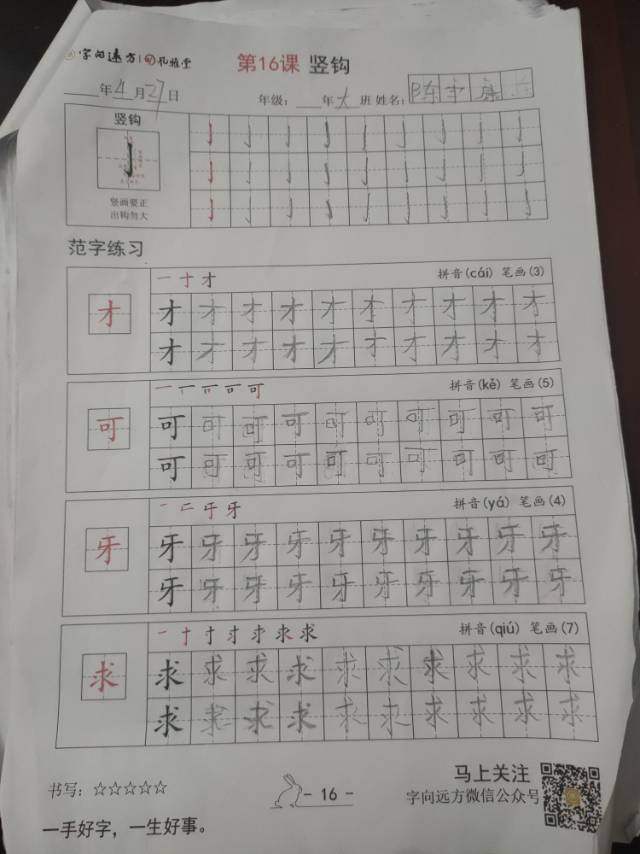 字向远方 孔雅堂 第16课 竖钩
年4月27日 年级: 年大班 姓名: 陈宇康
竖钩
竖画要正
出钩勿大
范字练习
一十才 拼音(cái) 笔画(3)
才 才才才才才才才才才才
才才才才才才才才才才
拼音(kě) 笔画(5)
可 可可可可可可可可可可
可可可可可可可可可可
拼音(yá) 笔画(4)
牙 牙牙牙牙牙牙牙牙牙牙
牙牙牙牙牙牙牙牙牙牙
拼音(qiú) 笔画(7)
求 求求求求求求求求求求
求求求求求求求求求求
书写: ☆☆☆☆☆ - 16 - 马上关注
字向远方微信公众号
一手好字，一生好事。